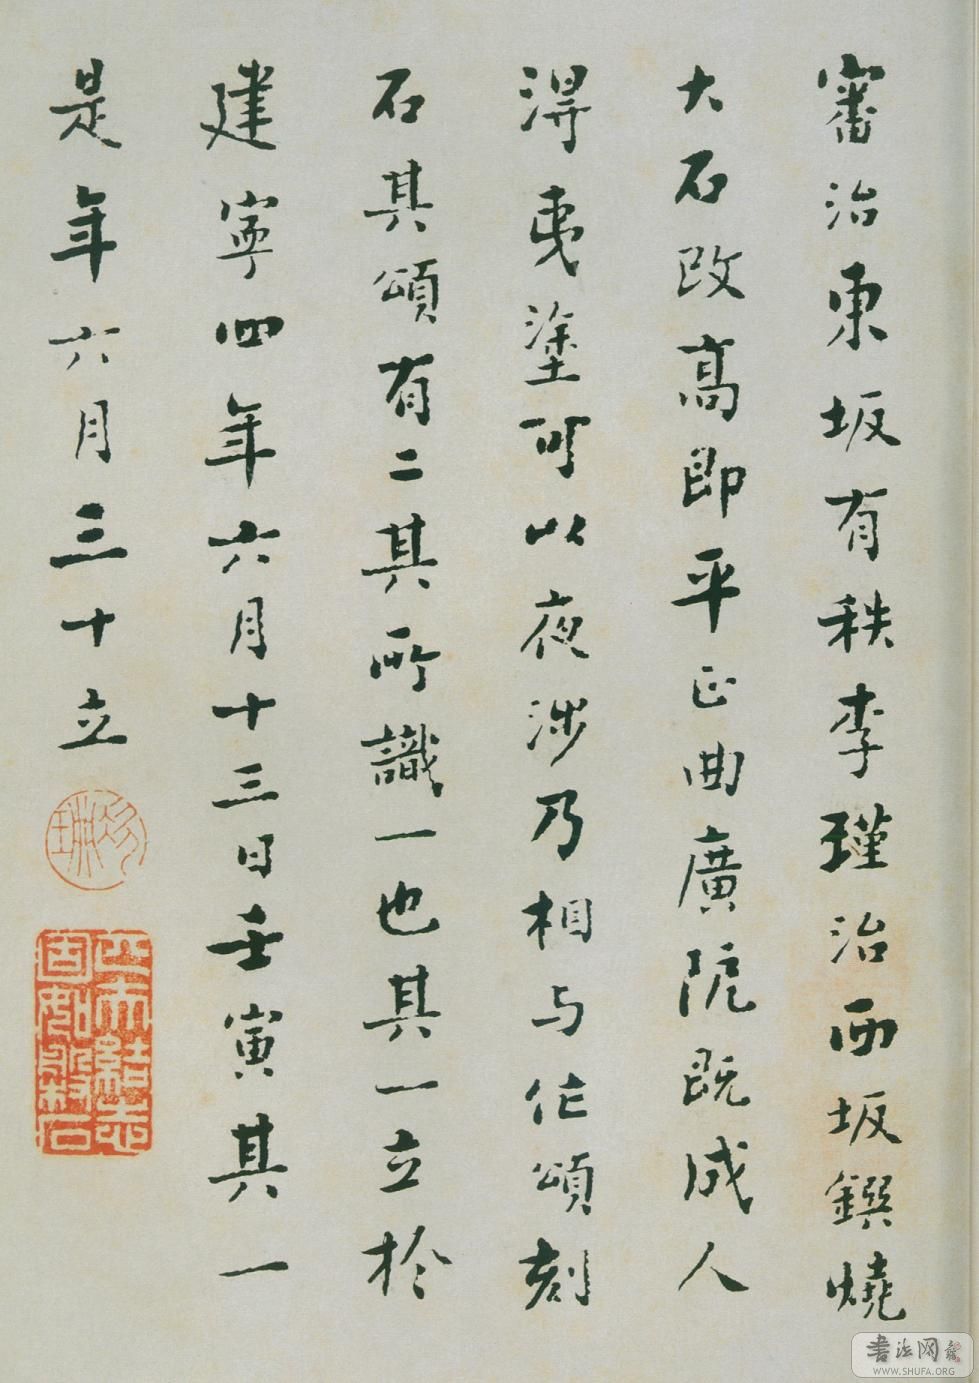 審治東坂有秩李瑾治西坂鐉燒
大石改高即平正曲廣阸既成人
得夷塗可以夜涉乃相与作頌刻
石其頌有二其所識一也其一立於
建寧四年六月十三日壬寅其一
是年六月三十立
書法网
WWW.SHUFA.ORG